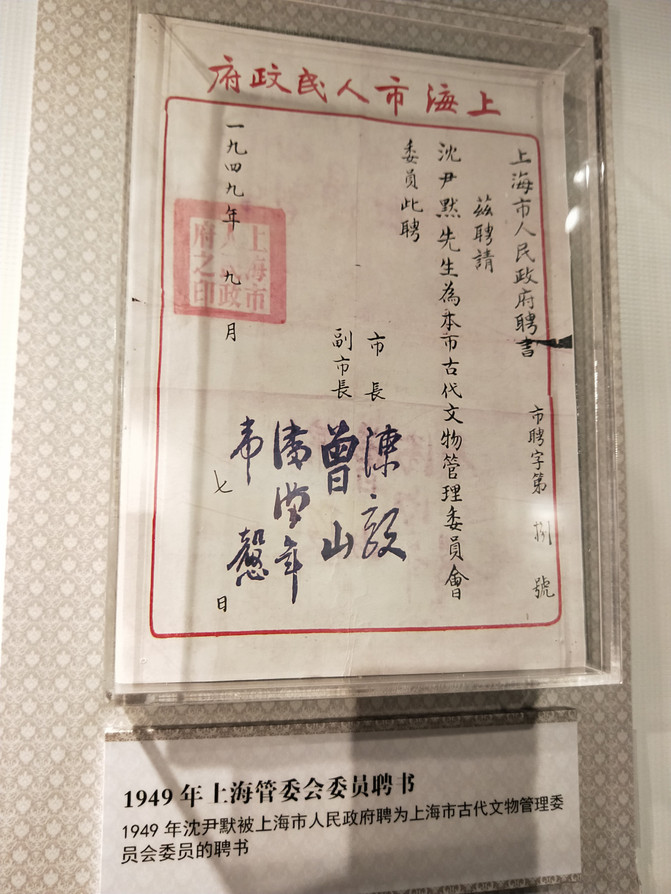 上海市人民政府
上海市人民政府聘書
市聘字第捌號
茲聘請
沈尹默先生為本市古代文物管理委員會
委員此聘
市長 陳毅
副市長 曾山
潘漢年
韋慤
一九四九年九月七日
上海市
人民政
府之印
1949 年上海管委会委员聘书
1949 年沈尹默被上海市人民政府聘为上海市古代文物管理委
员会委员的聘书